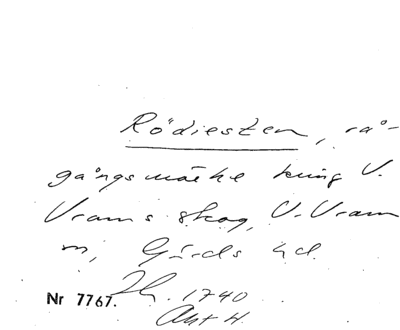 Rödiesten, rå-
gångsmärke kring V.
Vrams skog, V. Vram
sn, Gärds hd.
1740
Nr 7767.
Akt 4.